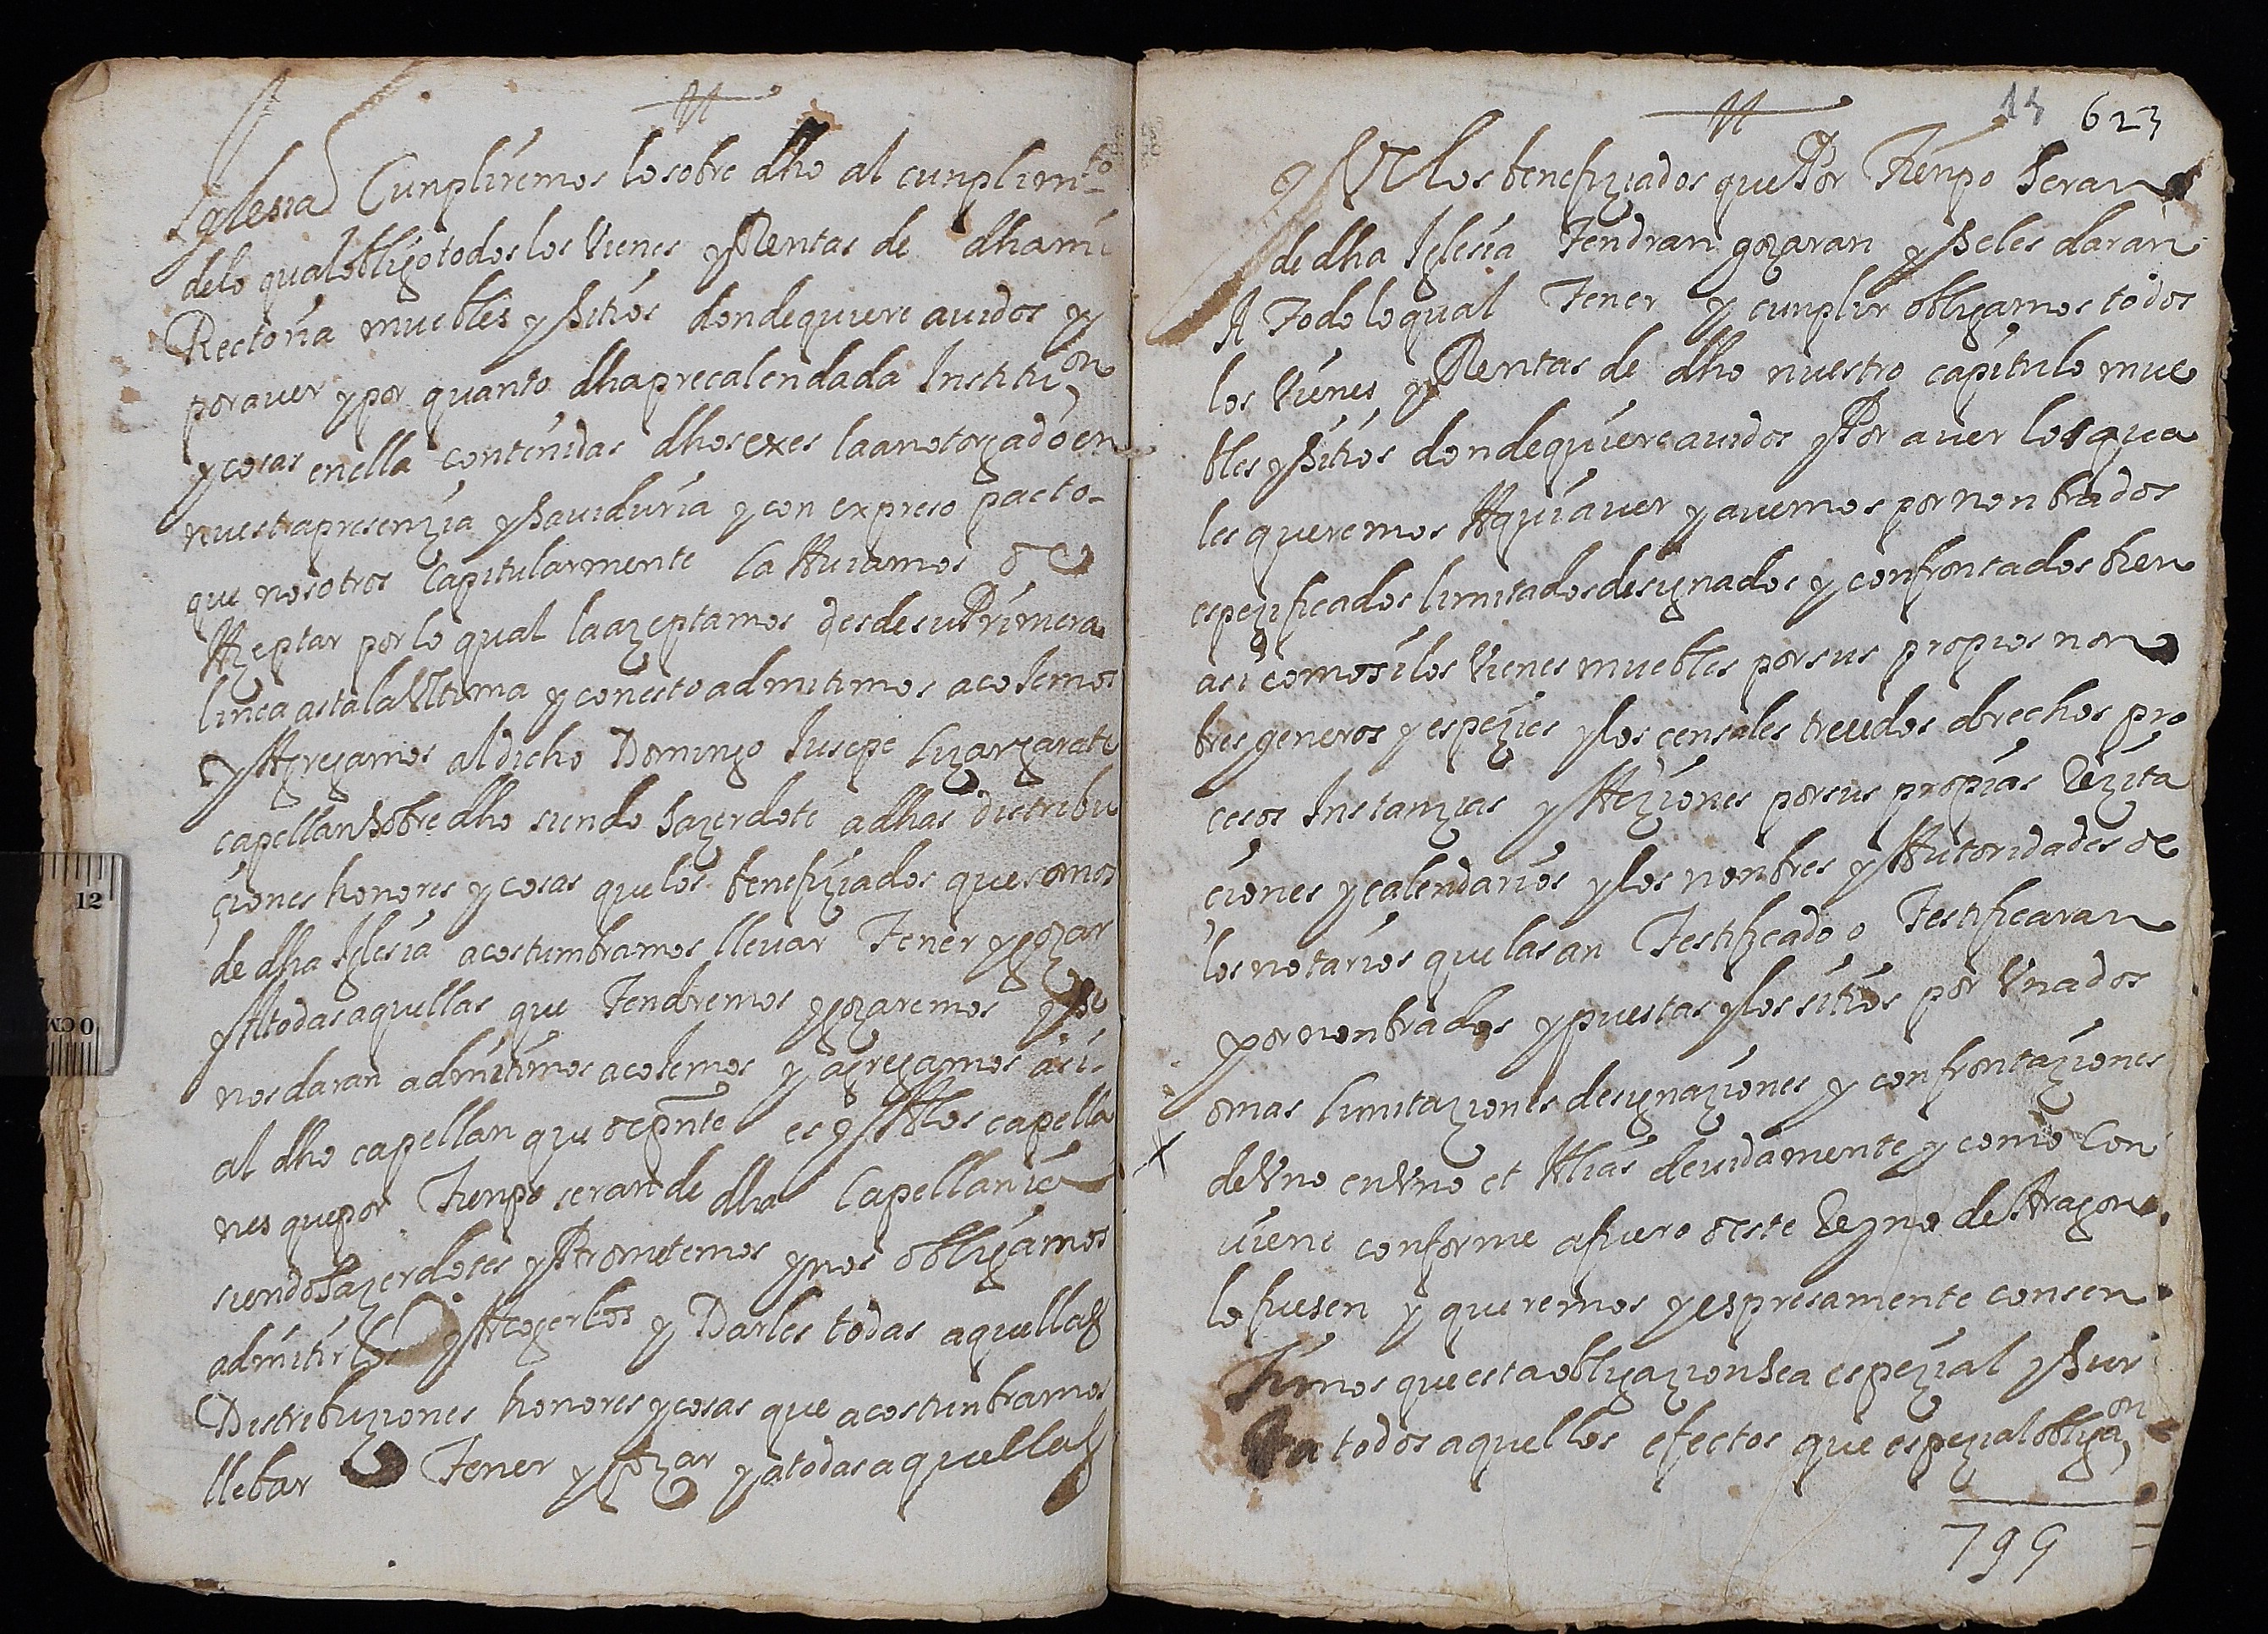 Iglesia Cunpliremos lo sobre dho al cunplimto
delo qual obligo todos los Vienes y Rentas de dha mi
Rectoria muebles y sitios dondequiere auidos y
por auer y por quanto dha precalendada Instituon
y cosas enella contenidas dhos exes la an otorgado en
nuestra presenzia y sauiduria y con expreso pacto
que nosotros Capitularmente la Auiamos de
Azeptar por lo qual la azeptamos desde su Primera
linea asta la Vltima y con esto admitimos acojemos
y Agregamos al dicho Domingo Jusepe Lizarzarate
capellan sobre dho siendo sazerdote a dhas distribu
çiones honores y cosas que los benefiziados que somos
de dha Iglesia acostumbramos lleuar Tener y gozar
y A todas aquellas que Tendremos y gozaremos y se
nos daran admitimos acojemos y agregamos asi
al dho capellan que de pnte es y A los capella
nes que por Tienpo seran de dha Capellania
siendo sazerdotes y Prometemos y nos obligamos
admitirlos y Acogerlos y Darles todas aquellas
Distribuziones honores y cosas que acostunbramos
llebar Tener y gozar y a todas aquellas
13 623
q los benefiziados que Por Tienpo seran
de dha Iglesia Tendran gozaran y se les daran
A Todo lo qual Tener y cunplir obligamos todos
los Vienes y Rentas de dho nuestro capitulo mue
bles y sitios dondequiere auidos y Por auer los qua
les queremos Aqui auer y auemos por nonbrados
espezificados limitados designados y confrontados bien
asi como si los Vienes muebles por sus propios non
bres generos y espezies y los censales treudos drechos pro
cesos Instanzias y Aziones por sus propias Rezita
ciones y calendarios y los nonbres y Autoridades de
los notarios que las an Testificado o Testificaran
por nonbrados y puestas y los sitios por Vna dos
o mas limitaziones designaziones y confrontaziones
de Vno en Vno et Alias deuidamente y como Con
uiene conforme a fuero deste Reyno de Aragon
lo fuesen y queremos y espresamente consen
Timos que esta obligazion sea espezial y sur
ta todos aquellos efectos que espezial obligaon
799